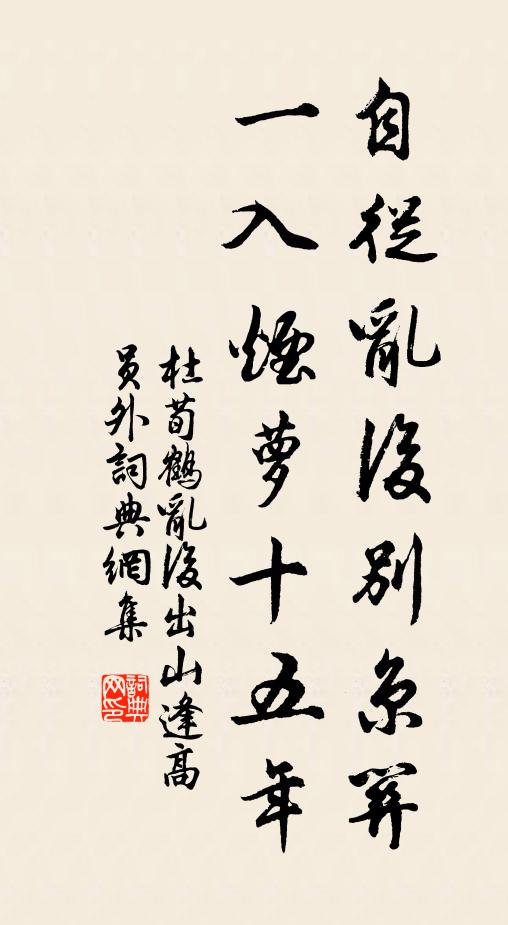 自從亂後別京關
一入煙萝十五年
杜荀鶴亂後出山逢高
員外詞典網集
詞典
网印